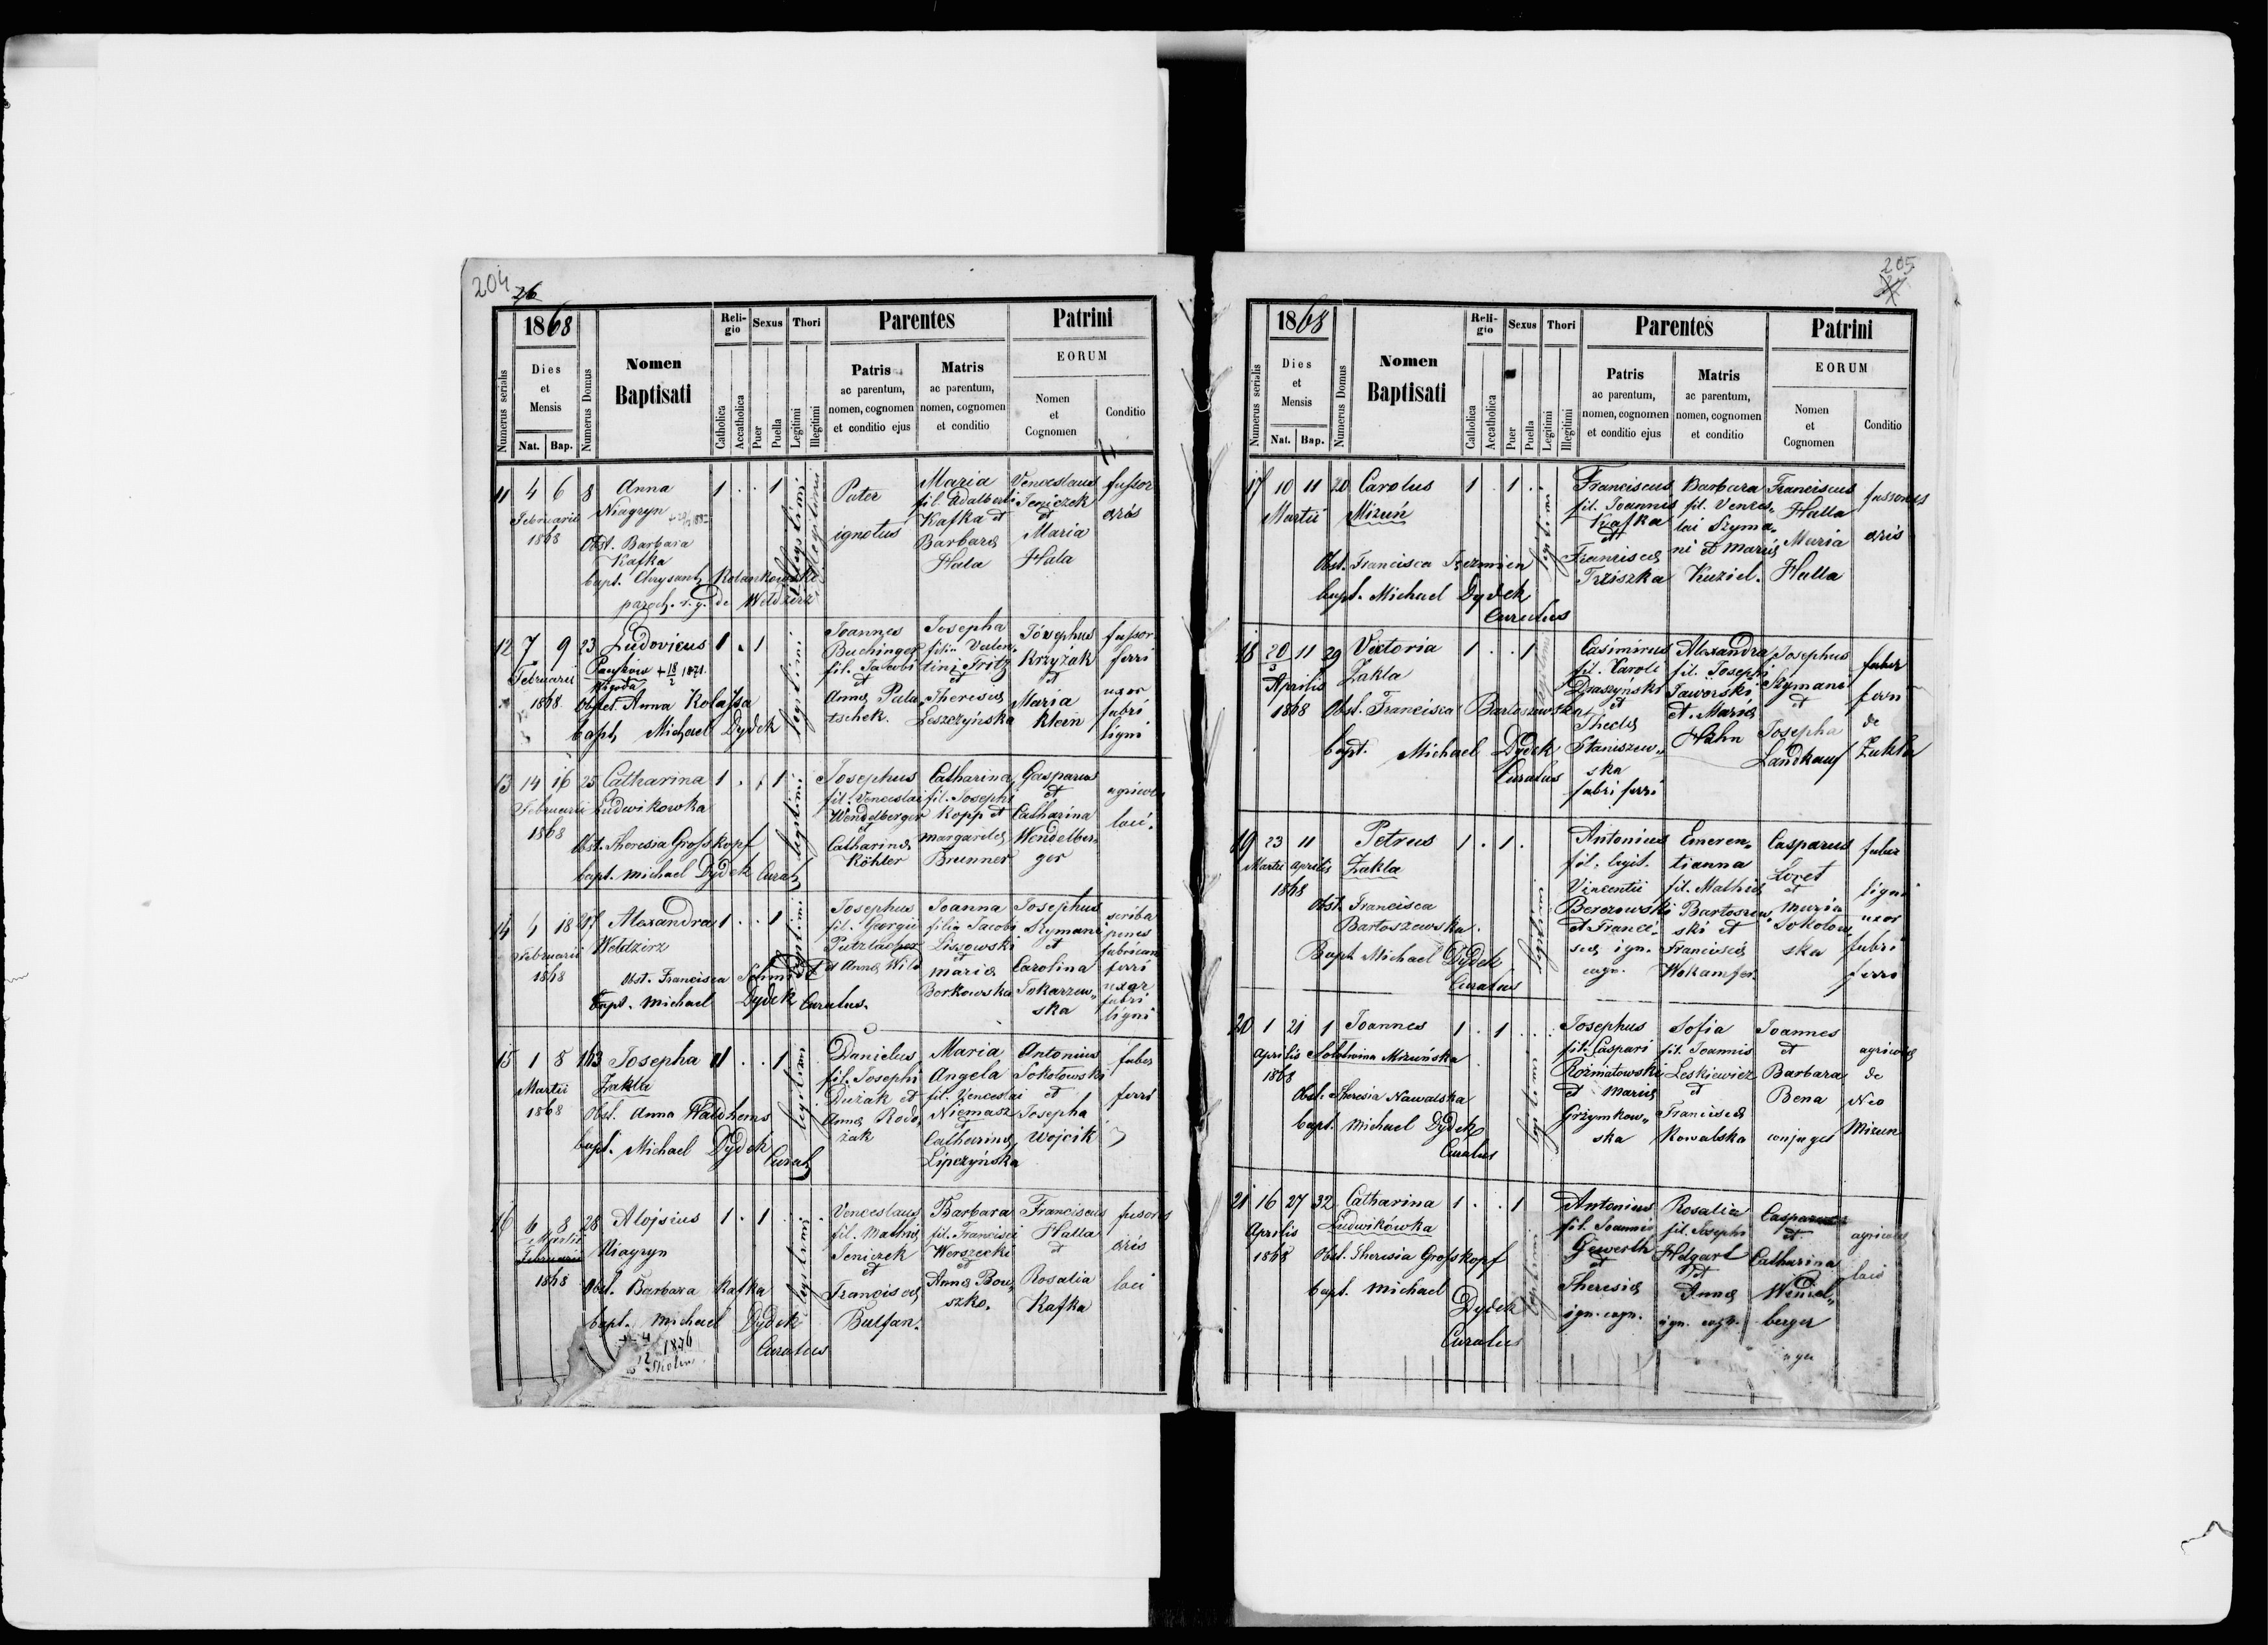 204
26
1868
Numerus serialis
Dies
et
Mensis
Nat. Bap.
Numerus Domus
Nomen
Baptisati
Reli-
gio
Catholica
Accatholica
Sexus
Puer
Puella
Thori
Legitimi
Illegitimi
Parentes
Patris
ac parentum,
nomen, cognomen
et conditio ejus
Matris
ac parentum,
nomen, cognomen
et conditio
Patrini
EORUM
Nomen
et
Cognomen
Conditio
11 4 6 8 Anna 1 . . 1
Februarii Niagryn
1868
Obst. Barbara
Kafka
bapt. Chrysanth Kolankowski
paroch. r. g. de Weldzirz
Illegitimi
Pater
ignotus
Maria
fil. Adalberti
Kafka et
Barbara
Hala
Venceslaus
Jeniczek
et
Maria
Hala
fussor
æris
12 7 9 23 Ludovicus 1 . 1
Februarii
+ 18/2 1871.
1868 Obstet. Anna Kolassa
bapt. Michael Dydek
legitimi
Joannes
Buchinger
fil. Jacobi
et
Anna Pala
tschek.
Josepha
filia Valen-
tini Fritz
et
Theresia
Leszczyńska
Josephus
Krzyżak
et
Maria
Klein
fussor
ferri
uxor
fabri
ligni
13 14 16 25 Catharina 1 . . 1
Februarii Ludwikowka
1868
Obst. Theresia Grosskopf
bapt. Michael Dydek Curat.
legitimi
Josephus
fil. Venceslai
Wendelberger
et
Catharina
Köhler
Catharina
fil. Josephi
Kopp et
Margaretha
Brunner
Gasparus
et
Catharina
Wendelber-
ger
agricola
loci.
14 4 18 Alexandra 1 . . 1
Februarii Weldzirz
1868
Obst. Francisca Schmidt
bapt. Michael Dydek Curatus.
legitimi
Josephus
fil. Georgii
Putzlacher
et Anna Wild
Joanna
filia Jacobi
Lisowski
et
Maria
Borkowska
Josephus
Szymane
et
Carolina
Tokarzew-
ska
scriba
penes
fabricam
ferri
uxor
fabri
ligni
15 1 8 163 Josepha 1 . . 1
Martii Zakla
1868
Obst. Anna Waldhems
bapt. Michael Dydek
Curat.
legitimi
Danielus
fil. Josephi
Dużak et
Anna Rodo-
żak
Maria
Angela
fil. Venceslai
Niemasz
et
Catharina
Lipczyńska
Antonius
Sokołowski
et
Josepha
Wojcik
faber
ferri
16 6 8 28 Alojsius 1 . 1
Martii
Februarii Niagryn
1868
Obst. Barbara Kafka
bapt. Michael Dydek
Curatus
1876
legitimi
Venceslaus
fil. Mathiæ
Jeniczek
et
Francisca
Bulfan.
Barbara
fil. Francisci
Werszecki
et
Anna Bow-
szko.
Franciscus
Halla
et
Rosalia
Kafka
fusores
æris
loci
205
1868
Numerus serialis
Dies
et
Mensis
Nat. Bap.
Numerus Domus
Nomen
Baptisati
Reli-
gio
Catholica
Accatholica
Sexus
Puer
Puella
Thori
Legitimi
Illegitimi
Parentes
Patris
ac parentum,
nomen, cognomen
et conditio ejus
Matris
ac parentum,
nomen, cognomen
et conditio
Patrini
EORUM
Nomen
et
Cognomen
Conditio
17 10 11 20 Carolus 1 . 1 .
Martii Mizuń
Obst. Francisca
bapt. Michael Dydek
Curatus
legitimi
Franciscus
fil. Joannis
Kafka
et
Francisca
Trziszka
Barbara
fil. Vences-
lai Szyma-
ni et Maria
Kuziel.
Franciscus
Halla
Maria
Halla
fussores
æris
18 20/3 11 29 Victoria 1 . . 1
Aprilis Zakla
1868
Obst. Francisca Bartoszewska
bapt. Michael Dydek
Curatus
legitimi
Casimirus
fil. Karoli
Draszynski
et
Thecla
Staniszew-
ska
fabri ferri
Alexandra
fil. Josephi
Jaworski
et Maria
Hahn
Josephus
Szymane
et
Josepha
Landkauf
faber
ferri
de
Zakla
19 23 11 Petrus 1 . 1 .
Martii Aprilis Zakla
1868
Obst. Francisca
Bartoszewska.
Bapt. Michael Dydek
Curatus
legitimi
Antonius
fil. legit.
Vincentii
Berezowski
et Franci-
sca ign.
cogn.
Emeren-
tianna
fil. Mathiæ
Bartoszew-
ski et
Francisca
Casparus
Loret
et
Maria
Sokołow-
ska
faber
ligni
uxor
fabri
ferri
20 1 21 1 Joannes 1 . 1 . .
Aprilis Sołotwina Mizuńska
1868
Obst. Theresia Nawalska
bapt. Michael Dydek
Curatus
legitimi
Josephus
fil. Caspari
Rożniatowski
et Maria
Grzymkow-
ska
Sofia
fil. Joannis
Leskiewicz
et
Francisca
Kowalska
Joannes
et
Barbara
Bena
conjuges
agricolæ
de
Neo
Mizun
21 16 27 32 Catharina 1 . . 1
Aprilis Ludwikówka
1868
Obst. Theresia Grosskopf
bapt. Michael
Dydek
Curatus
legitimi
Antonius
fil. Joannis
Gewerth
et
Theresia
ign. cogn.
Rosalia
fil. Josephi
Helgart
et
Anna
ign. cogn.
Casparus
et
Catharina
Wendel-
berger
agricolæ
loci